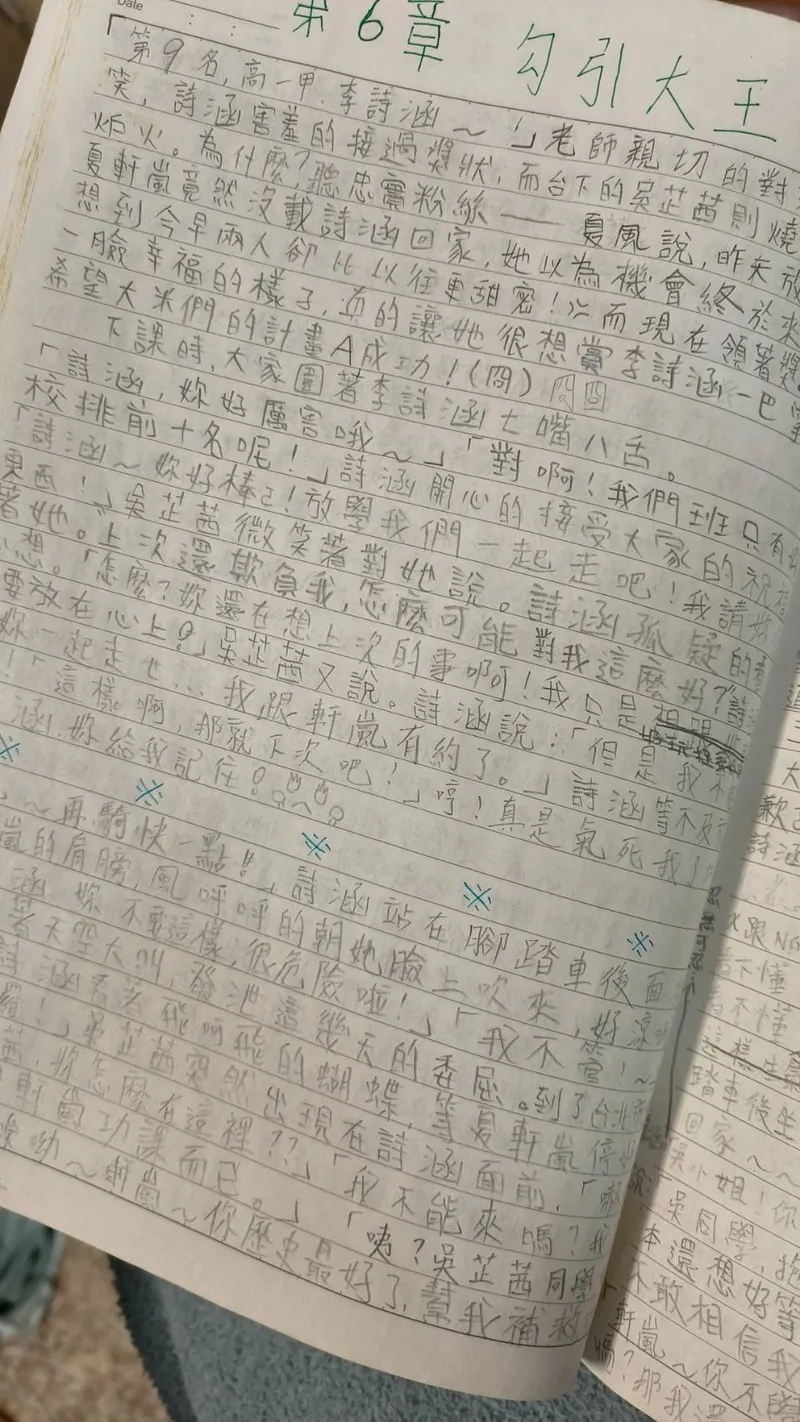 Date
第6章 勾引大王
「第9名,高一甲.李詩涵～!」老師親切的對
笑,詩涵害羞的接過獎狀,而台下的吳芷茜則燒
炉火。為什麼?聽忠實粉絲——夏風說,昨天放
夏軒嵐竟然沒載詩涵回家,她以為機會終於來
想到今早兩人卻比以往更甜密!而現在領著獎
一臉幸福的樣子,真的讓她很想賞李詩涵一巴
希望大米們的計畫A成功!(冏)冏囧
下課時,大家圍著李詩涵七嘴八舌。
「詩涵,妳好厲害哦～」「對啊!我們班只有妳
校排前十名呢!」詩涵開心的接受大家的祝
「詩涵～妳好棒!放學我們一起走吧!我請妳
東西!」吳芷茜微笑著對她說。詩涵孤疑的
著她。上次還欺負我,怎麼可能對我這麼好?詩
想。「怎麼?妳還在想上次的事啊!我只是
要放在心上!」吳芷茜又說。詩涵說:「但是我
妳一起走ㄝ...我跟軒嵐有約了。」詩涵等不及
!「這樣啊,那就下次吧!」哼!真是氣死我了
涵,妳給我記住!
※ ※ ※ ※ ※
～再騎快一點!!」詩涵站在腳踏車後面
嵐的肩膀,風呼呼的朝她臉上吹來,好涼
涵妳不要這樣,很危險啦!」「我不管!～
著天空大叫,發泄這幾天的委屈。到了台北市
詩涵看著飛呵飛的蝴蝶,等夏軒嵐停
!」吳芷茜突然出現在詩涵面前,「咦
茜,妳怎麼在這裡??」「我不能來嗎?我
軒嵐功課而已。」「咦?吳芷茜同學
唉呦～軒嵐～你歷史最好了,幫我補救
忍無可忍
詩涵
跟NO
看下懂
看不懂
踏車後坐
回家～～
吳小姐!你
吳同學,抱
本還想好等
不敢相信我
軒嵐～你不
嗎?那我